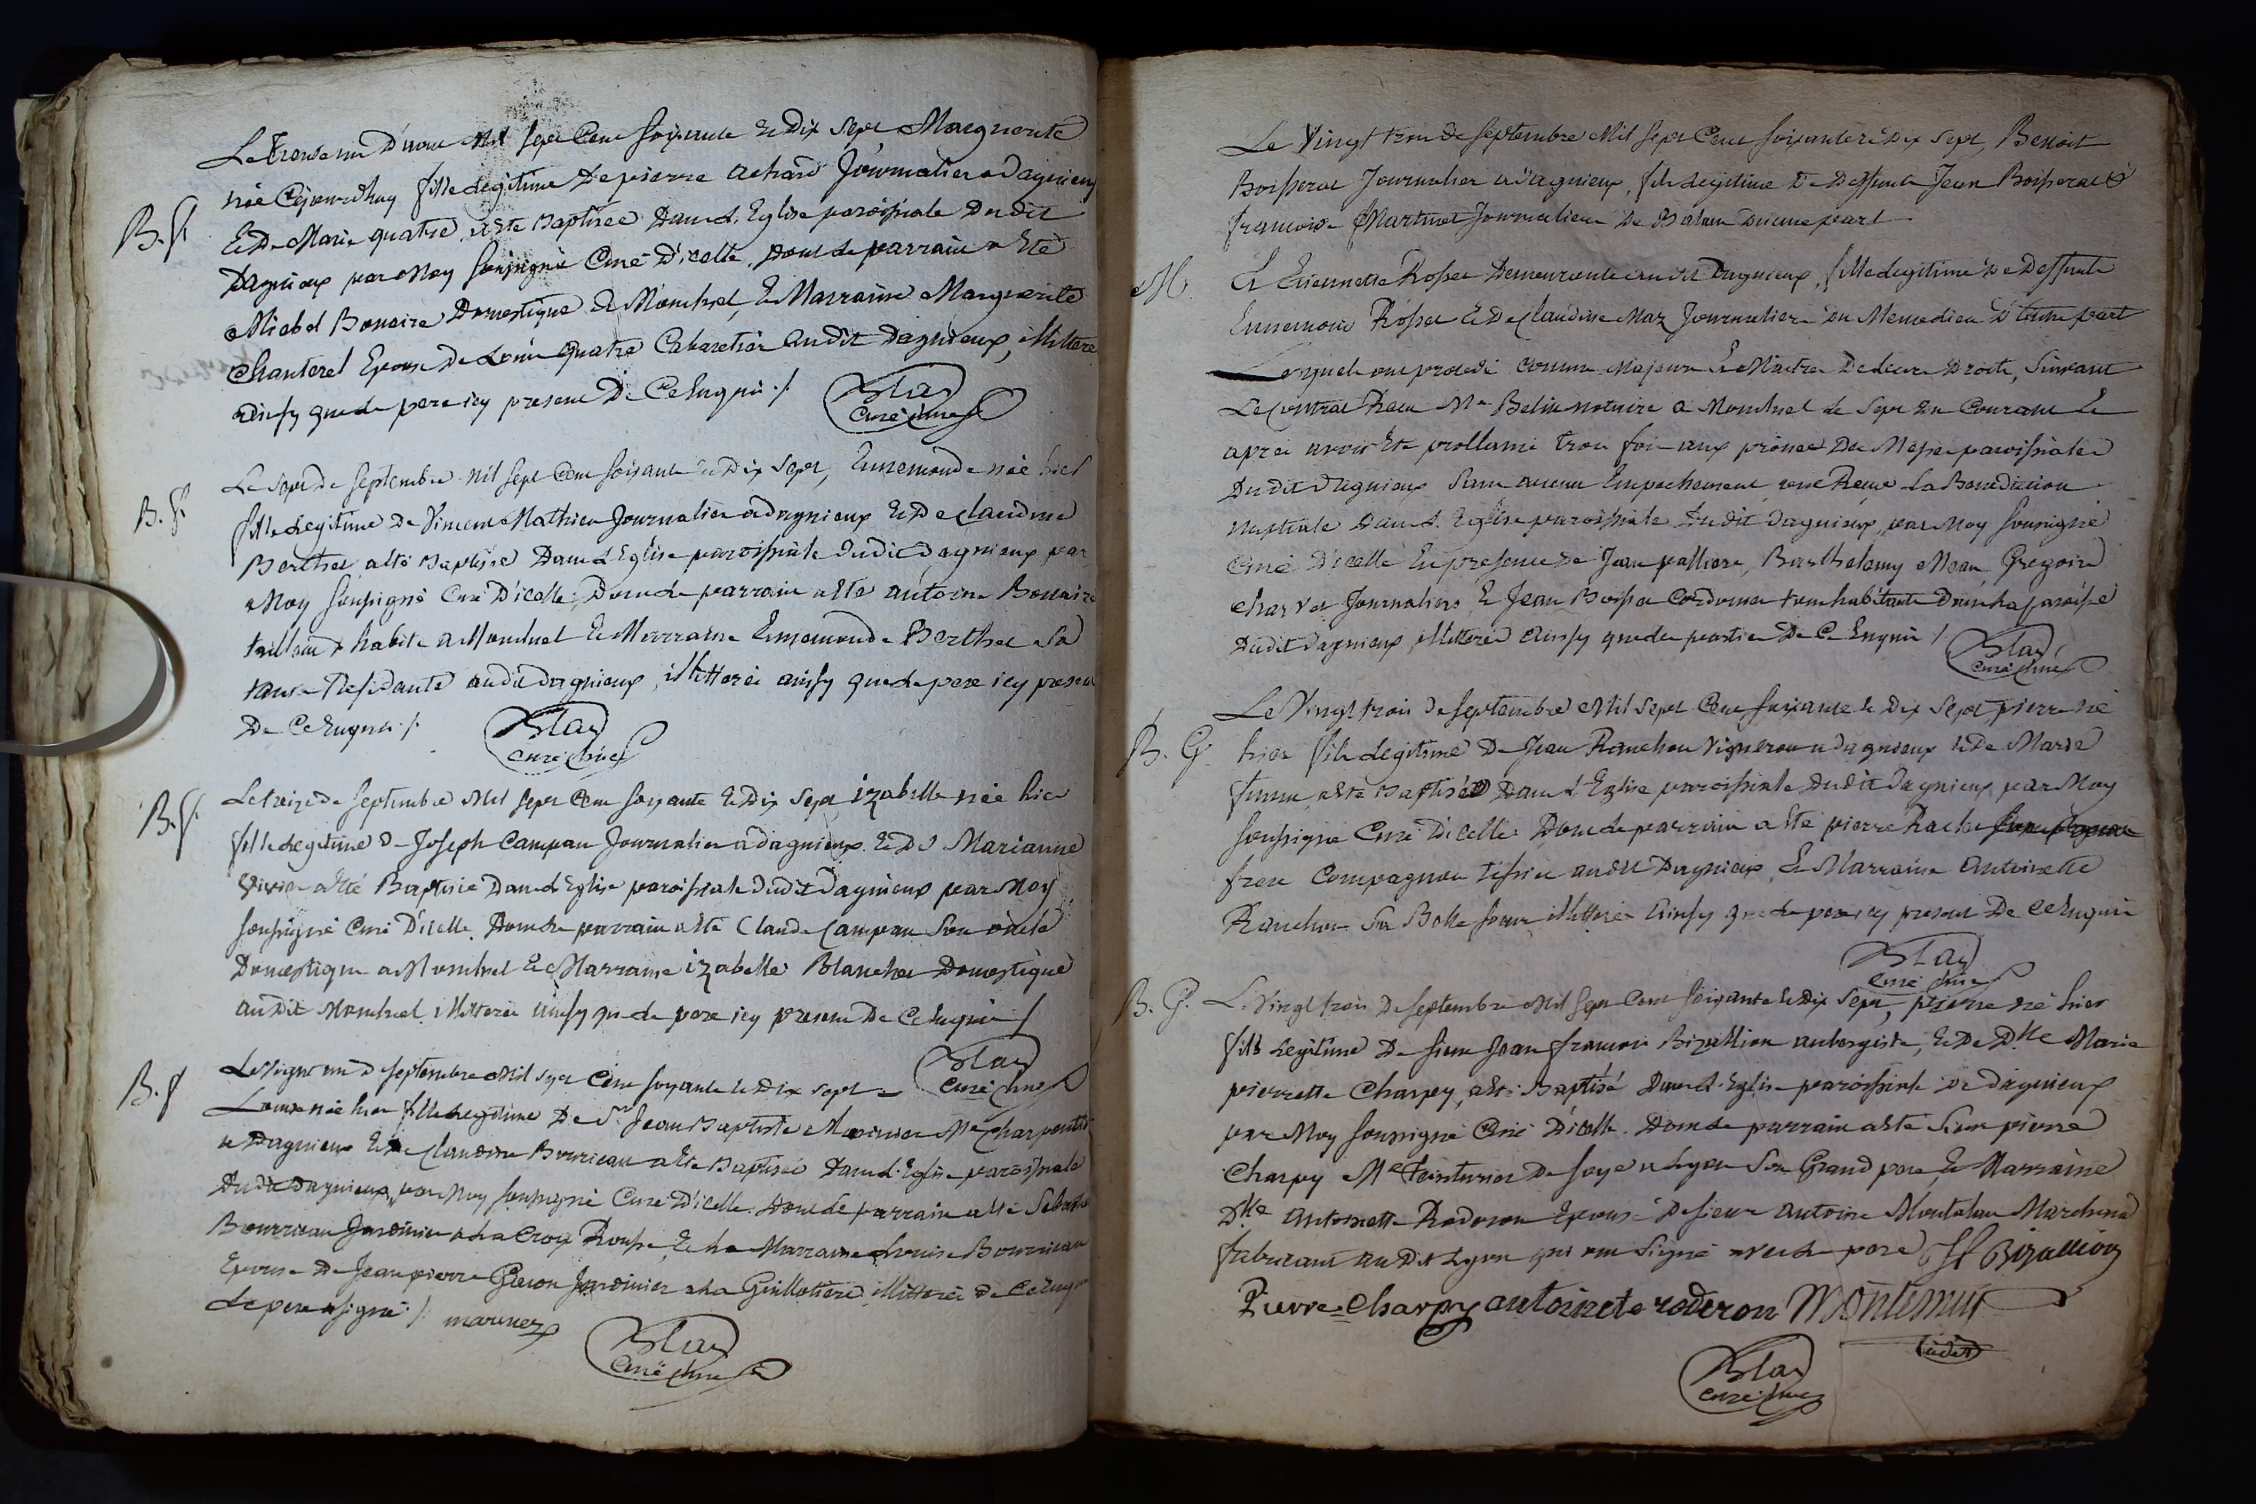 Le Trente un D'aout Mil Sept Cent Soixante et Dix Sept Marguerite
B. f. née Cejourdhuy fille Legitime De pierre achard Journalier a Dagnieux
et De Marie quatre, a ete Baptisée Dans L'Eglise paroissiale Dudit
Dagnieux par Moy Soussigné Curé D'icelle, Dont Le parrain a Eté
Michel Bonaire Domestique a Montluel, Et Marraine Marguerite
Chanterel Epouse De Louis quatre Cabaretier audit Dagnieux, illiteré
ainsy que Le pere icy present De Ce Enquis ./.
Blas
Curé
Le Sept De Septembre Mil Sept Cent Soixante et Dix Sept, Ennemonde née hier
B. f. fille Legitime De Vincent Mathieu Journalier a Dagnieux et De Claudine
Berthet a été Baptisée Dans L'Eglise paroissiale Dudit Dagnieux par
Moy Soussigné Curé D'icelle, Dont Le parrain a ete antoine Bonaire
tailleur habite a Montluel Et Marraine Ennemonde Berthet Sa
tante Residante audit Dagnieux, illitterés ainsy que Le pere icy present
De Ce Enquis ./.
Blas
Curé
Le treize De Septembre Mil Sept Cent Soixante et Dix Sept izabelle née hier
B. f. fille Legitime De Joseph Campan Journalier a Dagnieux et De Marianne
a eté Baptisée Dans L'Eglise paroissiale Dudit Dagnieux par Moy
Soussigné Curé D'icelle. Dont Le parrain a eté Claude Campan Son oncle
Domestique a Montluel et Marraine izabelle Blanchet Domestique
audit Montluel illitterés ainsy que Le pere icy present De Ce Enquis ./
Blas
Curé
B. f. Le Vingt un De Septembre Mil Sept Cent Soixante et Dix Sept
Louise née hier fille Legitime De Sr. Jean Baptiste Marinier Me Charpentier
a Dagnieux et De Claudine Bourricau a ete Baptisée Dans L'Eglise paroissiale
Dudit Dagnieux, par Moy Soussigné Curé D'icelle. Dont Le parrain a eté
Bourricau Jardinier a La Croix Rousse, Et La Marraine Louise Bourricau
Epouse De Jean pierre Jardinier a La Guillotiere, illitterés De Ce Enquis
Le pere a signé ./.
Blas
Curé
Le Vingt trois De Septembre Mil Sept Cent Soixante et Dix Sept, Benoit
Boisserat Journalier a Dagnieux, fils Legitime De Deffunt Jean Boisserat &
francoise Martinet Journaliere De Balan D'une part
M. Et Etiennette Rosset Demeurante audit Dagnieux, fille Legitime De Deffunt
Ennemond Rosset et De Claudine Maz Journaliere Du Meme Lieu D'autre part
Lesquels ont procedé comme Majeurs Et Maitres De Leurs Droits, Suivant
Le Contrat Recu Me Belin notaire a Montluel Le Sept Du Courant Et
après avoir Eté proclamé trois fois aux prônes Des Messes paroissiales
Dudit Dagnieux Sans aucun Empechement, ont Recu La Benediction
nuptiale Dans L'Eglise paroissiale Dudit Dagnieux, par Moy Soussigné
Curé D'icelle En presence De Jean palliere, Barthelemy Mean, Gregoire
Charvet Journaliers, Et Jean Boissa Cordonnier tous habitants Dans La paroisse
Dudit Dagnieux, illitterés ainsy que Les parties De Ce Enquis /
Blas
Curé
Le Vingt trois De Septembre Mil Sept Cent Soixante et Dix Sept pierre né
B. G. hier fils Legitime De Jean Ranchon Vigneron a Dagnieux et De Marie
a eté Baptisé Dans L'Eglise paroissiale Dudit Dagnieux par Moy
Soussigné Curé D'icelle. Dont Le parrain a Eté pierre
frere Compagnon tissier audit Dagnieux, Et Marraine Antoinette
Ranchon Sa Belle Soeur illitterés ainsy que Le pere icy present De Ce Enquis
Blas
Curé
B. G. Le Vingt trois De Septembre Mil Sept Cent Soixante et Dix Sept, pierre né hier
fils Legitime De Sieur Jean francois Bizallion aubergiste, et De Dlle Marie
pierrette Charpy, a eté Baptisé Dans L'Eglise paroissiale De Dagnieux
par Moy Soussigné Curé D'icelle. Dont Le parrain a Eté Sieur pierre
Charpy Me Teinturier De Soye a Lyon Son Grand pere, Et Marraine
Dlle Antoinette Roderon Epouse De Sieur Antoine Marchand
fabricant audit Lyon qui ont Signé avec Le pere Jf Bizallion
Pierre Charpy antoinete roderon
Blas
Curé